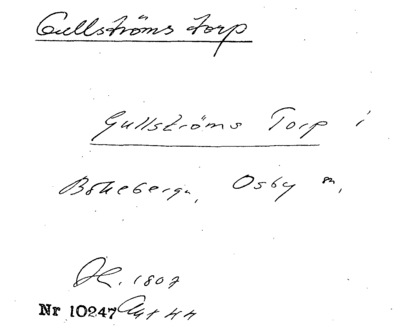 Gullströms torp
Gullströms Torp i
Bökeberga, Osby sn,
Hl. 1807
Nr 10247 Avt 44